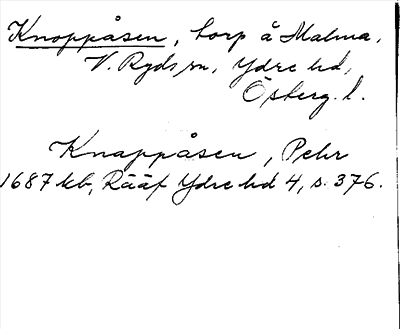 Knoppåsen, torp å Malma,
V. Ryds sn, Ydre hd,
Österg. l.
Knappåsen, Pehr
1687 kb, Rääf Ydre hd 4, s. 376.